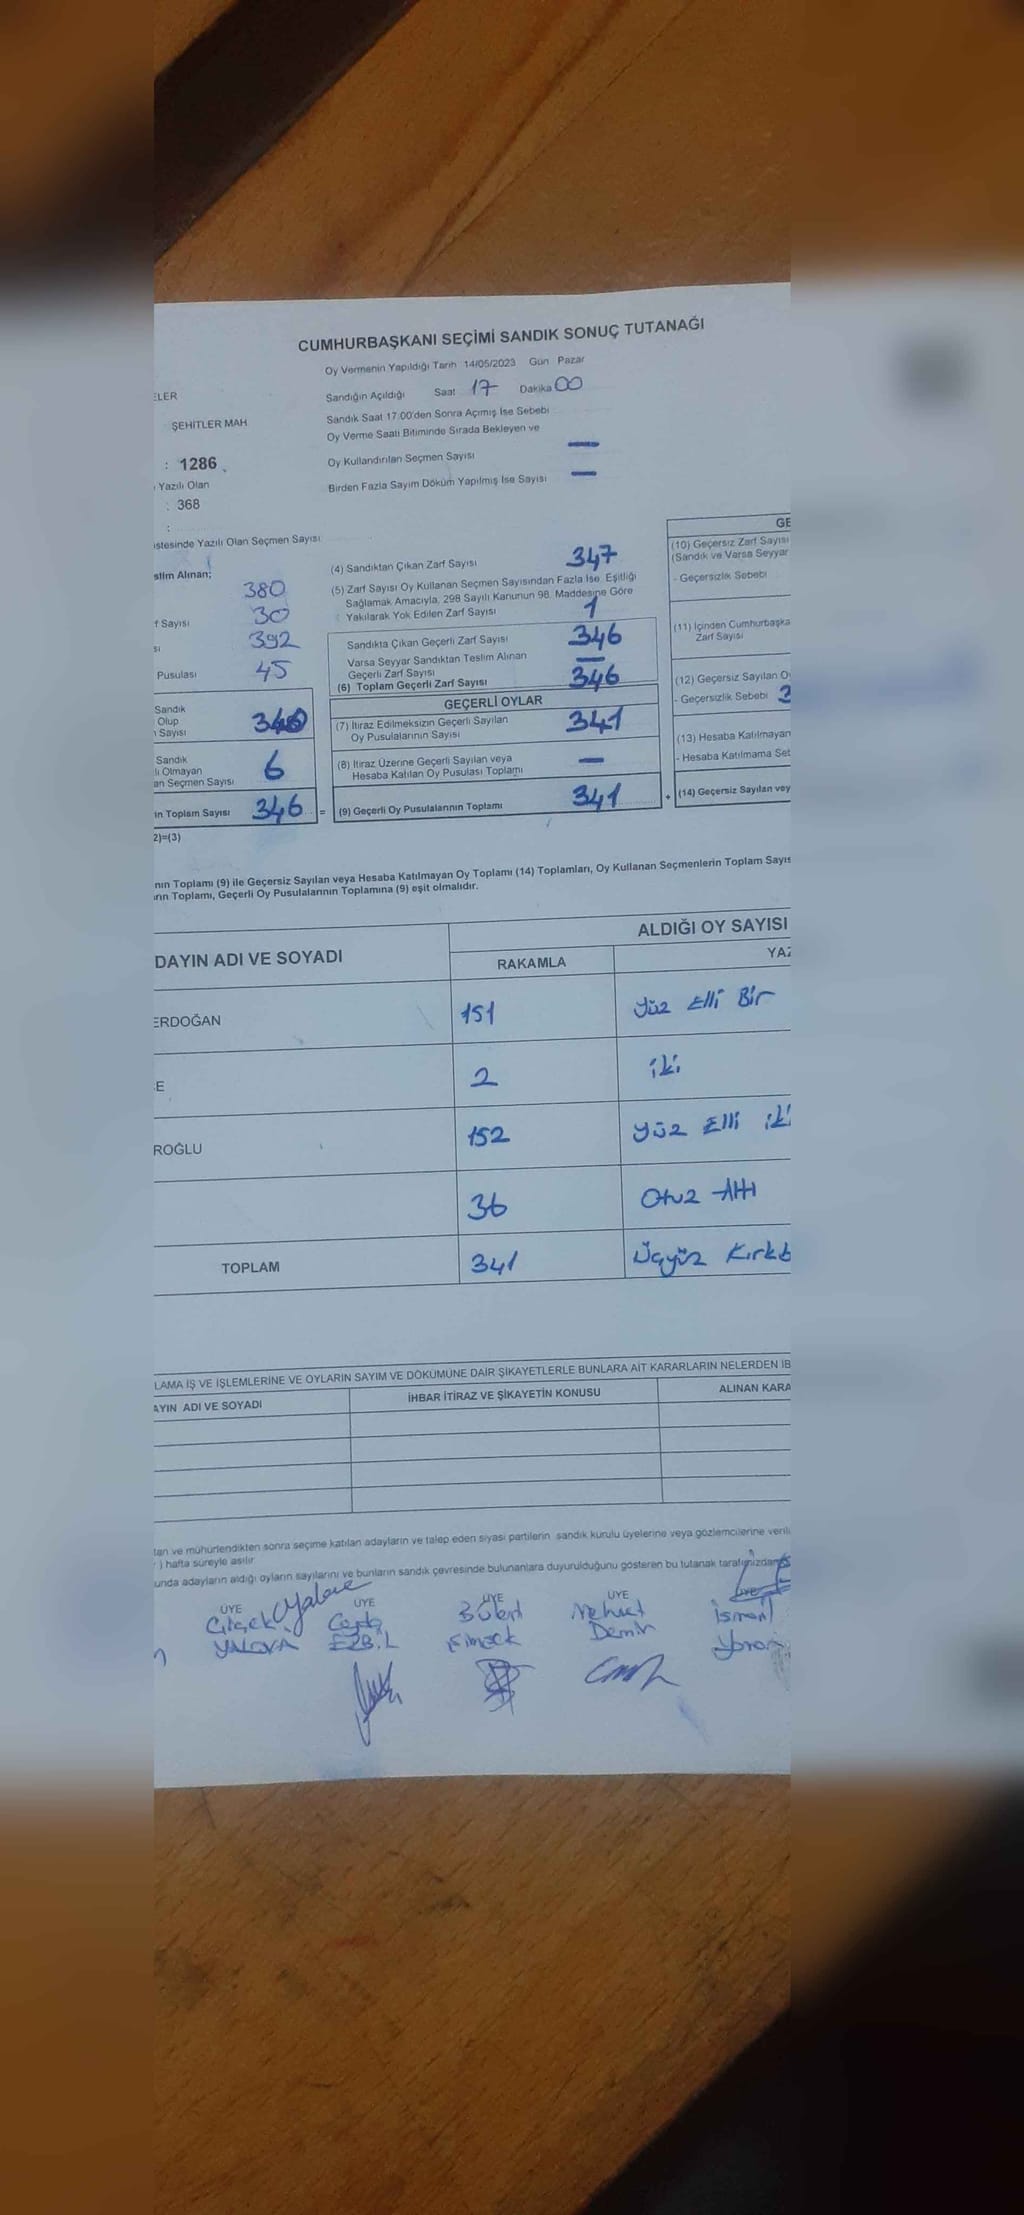 CUMHURBAŞKANI SEÇİMİ SANDIK SONUÇ TUTANAĞI
Oy Vermenin Yapıldığı Tarih 14/05/2023 Gün Pazar
ELER
Sandığın Açıldığı Saat 17 Dakika 00
ŞEHİTLER MAH
Sandık Saat 17:00'den Sonra Açımış İse Sebebi
Oy Verme Saati Bitiminde Sırada Bekleyen ve
: 1286
Oy Kullandırılan Seçmen Sayısı —
Yazılı Olan
Birden Fazla Sayım Döküm Yapılmış İse Sayısı —
: 368
:
istesinde Yazılı Olan Seçmen Sayısı
slim Alınan;
380
f Sayısı 30
sı 392
Pusulası 45
Sandık
Olup
Sayısı
Sandık
lı Olmayan
an Seçmen Sayısı 6
in Toplam Sayısı 346 =
2)=(3)
(4) Sandıktan Çıkan Zarf Sayısı 347
(5) Zarf Sayısı Oy Kullanan Seçmen Sayısından Fazla İse, Eşitliği
Sağlamak Amacıyla, 298 Sayılı Kanunun 98. Maddesine Göre
Yakılarak Yok Edilen Zarf Sayısı 1
Sandıkta Çıkan Geçerli Zarf Sayısı 346
Varsa Seyyar Sandıktan Teslim Alınan
Geçerli Zarf Sayısı —
(6) Toplam Geçerli Zarf Sayısı 346
GEÇERLİ OYLAR
(7) İtiraz Edilmeksizin Geçerli Sayılan
Oy Pusulalarının Sayısı 341
(8) İtiraz Üzerine Geçerli Sayılan veya
Hesaba Katılan Oy Pusulası Toplamı —
(9) Geçerli Oy Pusulalarının Toplamı 341 +
GE
(10) Geçersiz Zarf Sayısı
(Sandık ve Varsa Seyyar
- Geçersizlik Sebebi
(11) İçinden Cumhurbaşka
Zarf Sayısı
(12) Geçersiz Sayılan O
- Geçersizlik Sebebi
(13) Hesaba Katılmayan
- Hesaba Katılmama Seb
(14) Geçersiz Sayılan vey
nın Toplamı (9) ile Geçersiz Sayılan veya Hesaba Katılmayan Oy Toplamı (14) Toplamları, Oy Kullanan Seçmenlerin Toplam Sayıs
rın Toplamı, Geçerli Oy Pusulalarının Toplamına (9) eşit olmalıdır.
ALDIĞI OY SAYISI
DAYIN ADI VE SOYADI RAKAMLA YAZ
ERDOĞAN 151 Yüz Elli Bir
E 2 iki
ROĞLU 152 Yüz Elli iki
36 Otuz Altı
TOPLAM 341 Üçyüz Kırkb
LAMA İŞ VE İŞLEMLERİNE VE OYLARIN SAYIM VE DÖKÜMÜNE DAİR ŞİKAYETLERLE BUNLARA AİT KARARLARIN NELERDEN İB
AYIN ADI VE SOYADI İHBAR İTİRAZ VE ŞİKAYETİN KONUSU ALINAN KARA
tan ve mühürlendikten sonra seçime katılan adayların ve talep eden siyasi partilerin sandık kurulu üyelerine veya gözlemcilerine veril
) hafta süreyle asılır
unda adayların aldığı oyların sayılarını ve bunların sandık çevresinde bulunanlara duyurulduğunu gösteren bu tutanak tarafımızdan
ÜYE ÜYE ÜYE ÜYE ÜYE
Çiçek Yalova Bülent Mehmet İsmail
YALOVA Şimşek Demir